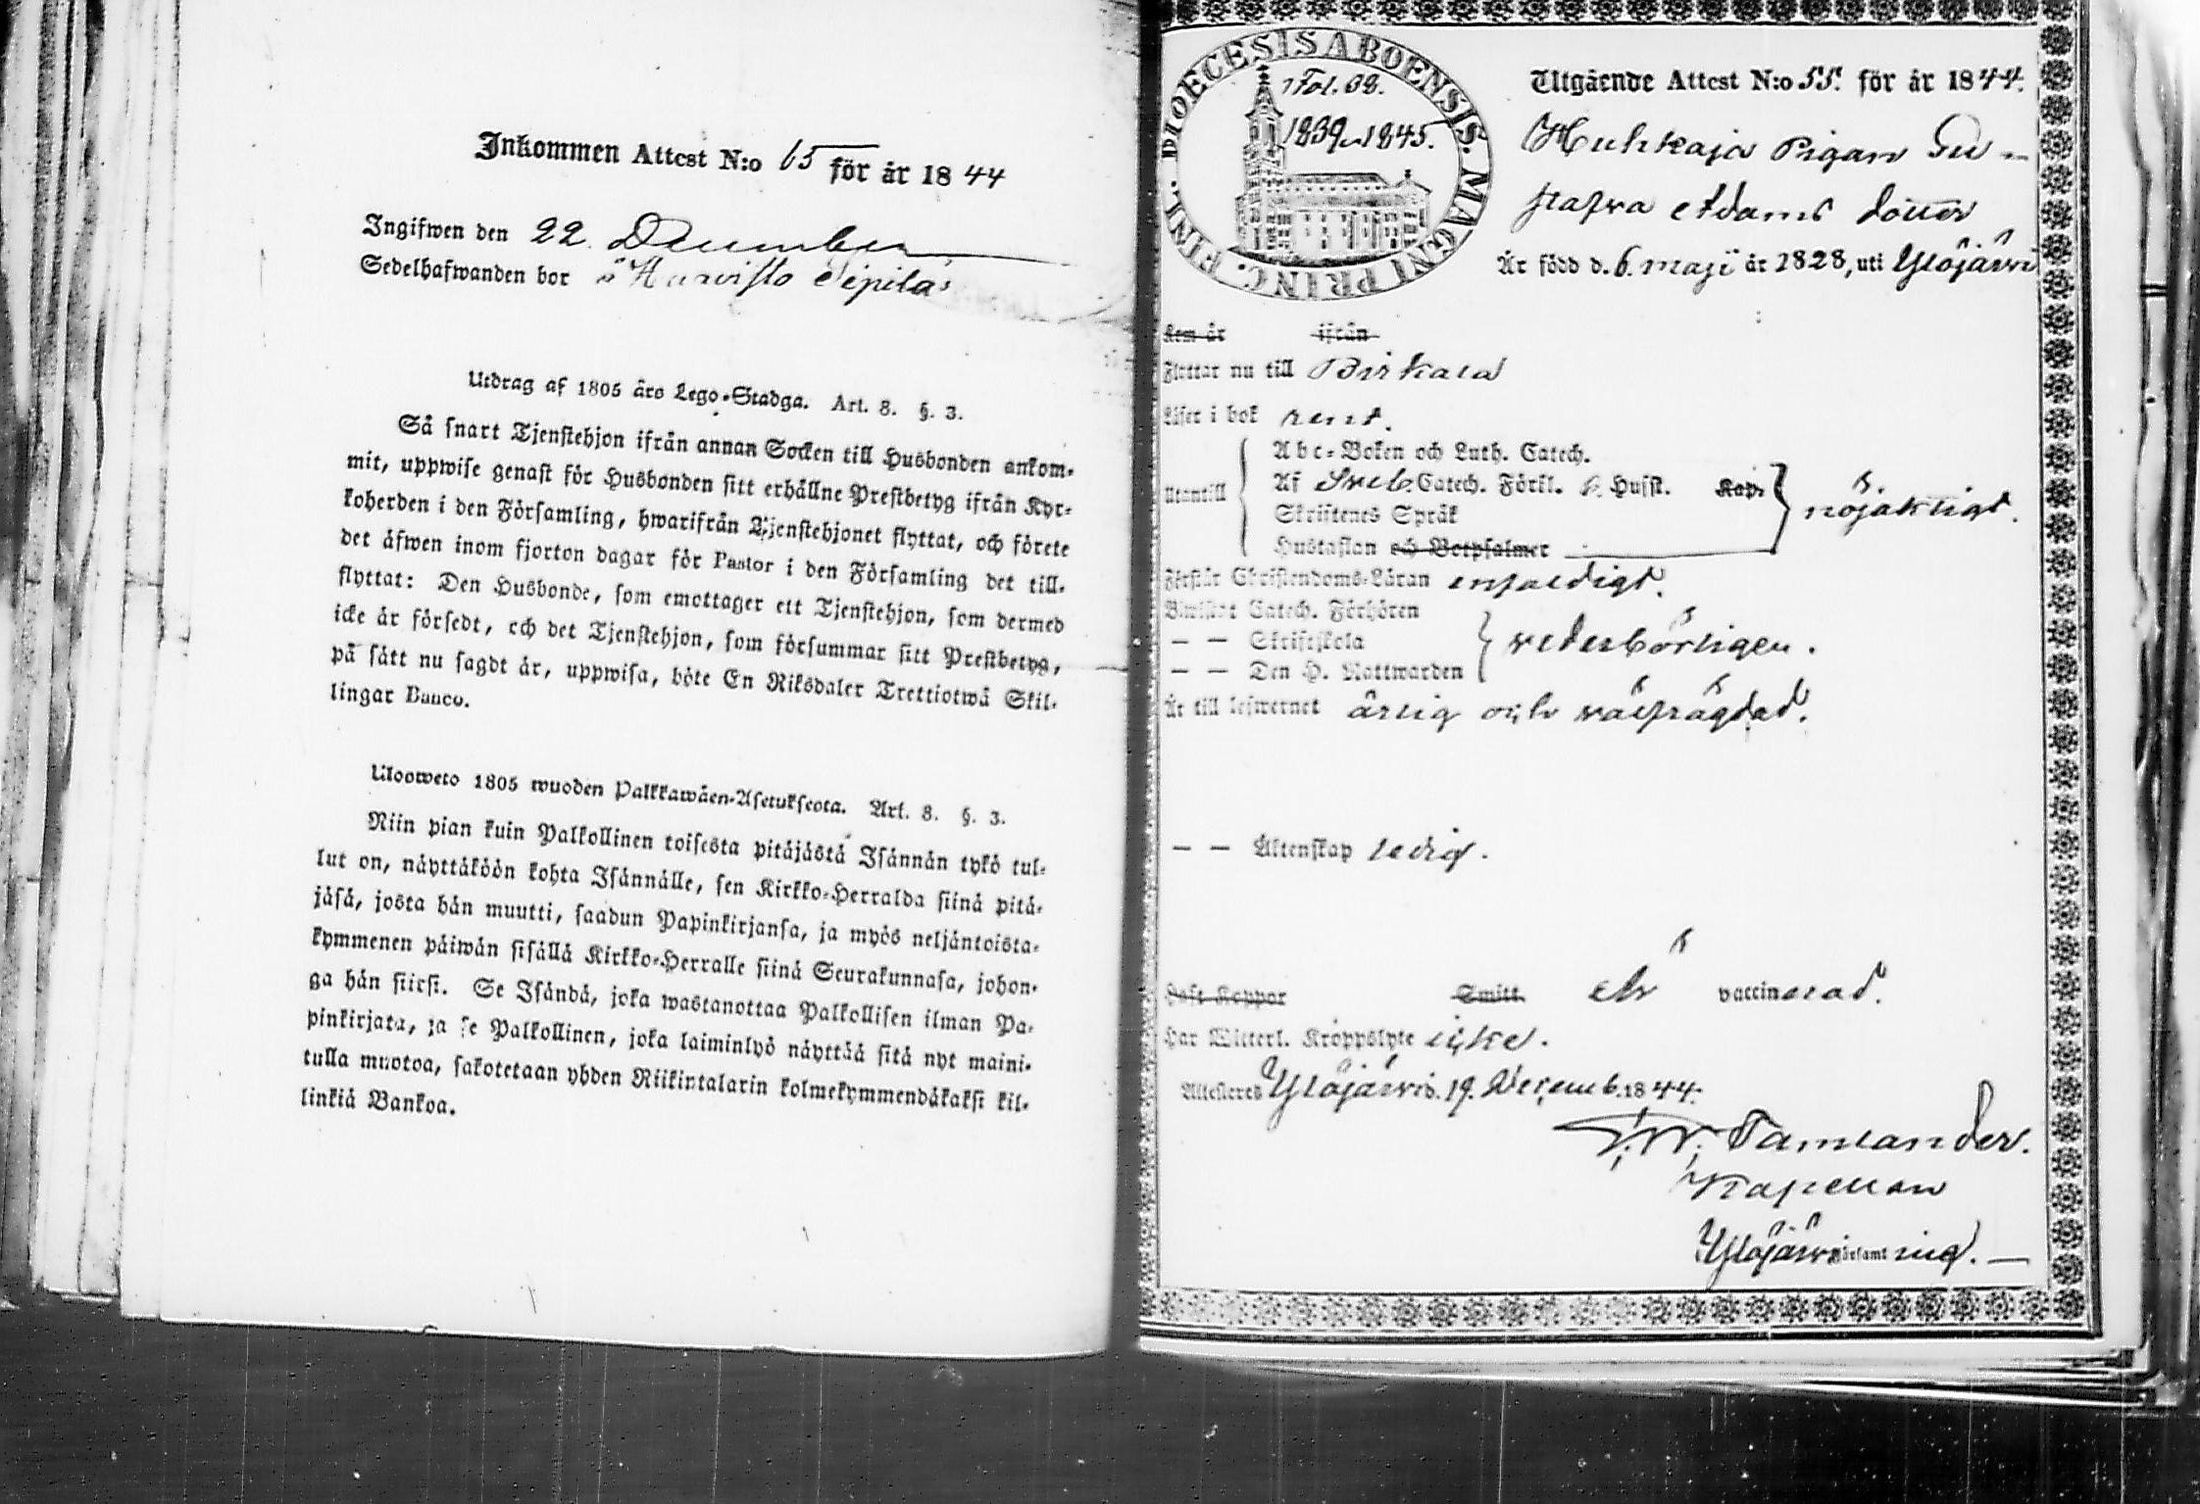 Inkommen Attest N:o 65 för år 1844
Ingifwen den 22 December
Sedelhafwanden bor å Harvisto Sipilä
Utdrag af 1805 års Lego-Stadga. Art. 8. §. 3.
Så snart Tjenstehjon ifrån annan Socken till Husbonden ankom-
mit, uppwise genast för Husbonden sitt erhållne Prestbetyg ifrån Kyr-
koherden i den Församling, hwarifrån Tjenstehjonet flyttat, och förete
det äfwen inom fjorton dagar för Pastor i den Församling det till-
flyttat: Den Husbonde, som emottager ett Tjenstehjon, som dermed
icke är försedt, och det Tjenstehjon, som försummar sitt Prestbetyg,
på sätt nu sagdt är, uppwisa, böte En Riksdaler Trettiotwå Skil-
lingar Banco.
Uloosweto 1805 wuoden Palkkawäen-Asetuksesta. Art. 8. §. 3.
Niin pian kuin Palkollinen toisesta pitäjästä Isännän tykö tul-
lut on, näyttäköön kohta Isännälle, sen Kirkko-Herralda siinä pitä-
jäsä, josta hän muutti, saadun Papinkirjansa, ja myös neljäntoista-
kymmenen päiwän sisällä Kirkko-Herralle siinä Seurakunnasa, johon-
ga hän siirsi. Se Isändä, joka wastanottaa Palkollisen ilman Pa-
pinkirjata, ja se Palkollinen, joka laiminlyö näyttää sitä nyt maini-
tulla muotoa, sakotetaan yhden Riikintalarin kolmekymmendäkaksi kil-
linkiä Bankoa.
DIOECESIS ABOENSIS. MAGNI PRINC. FINL.
Fol. 68.
1839-1845.
Utgående Attest N:o 55. för år 1844.
Huhkaja Pigan Gu-
stafva Adams dotter
Är född d. 6. maji år 1828, uti Ylöjärvi
Kom år ifrån
Flyttar nu till Birkala
Läser i bok rent.
Utantill
Abc-Boken och Luth. Catech.
Af Sveb. Catech. Förkl. o. Husst. Kap.
Skriftenes Språk
Hustaflan och Botpsalmer
nöjaktigt.
Förstår Christendoms-Läran enfaldigt.
Bewistat Catech. Förhören
— — Skriftskola
— — Den H. Nattwarden
vederbörligen.
Är till lefwernet ärlig och välfrägdad.
— — Äktenskap ledig.
Haft Koppor Smitt. är vaccinerad.
Har Witterl. Kroppslyte icke.
Attesteres Ylöjärvi d. 19. Decemb. 1844.
Tamlander.
Kapellan
Ylöjärvi Församling. —